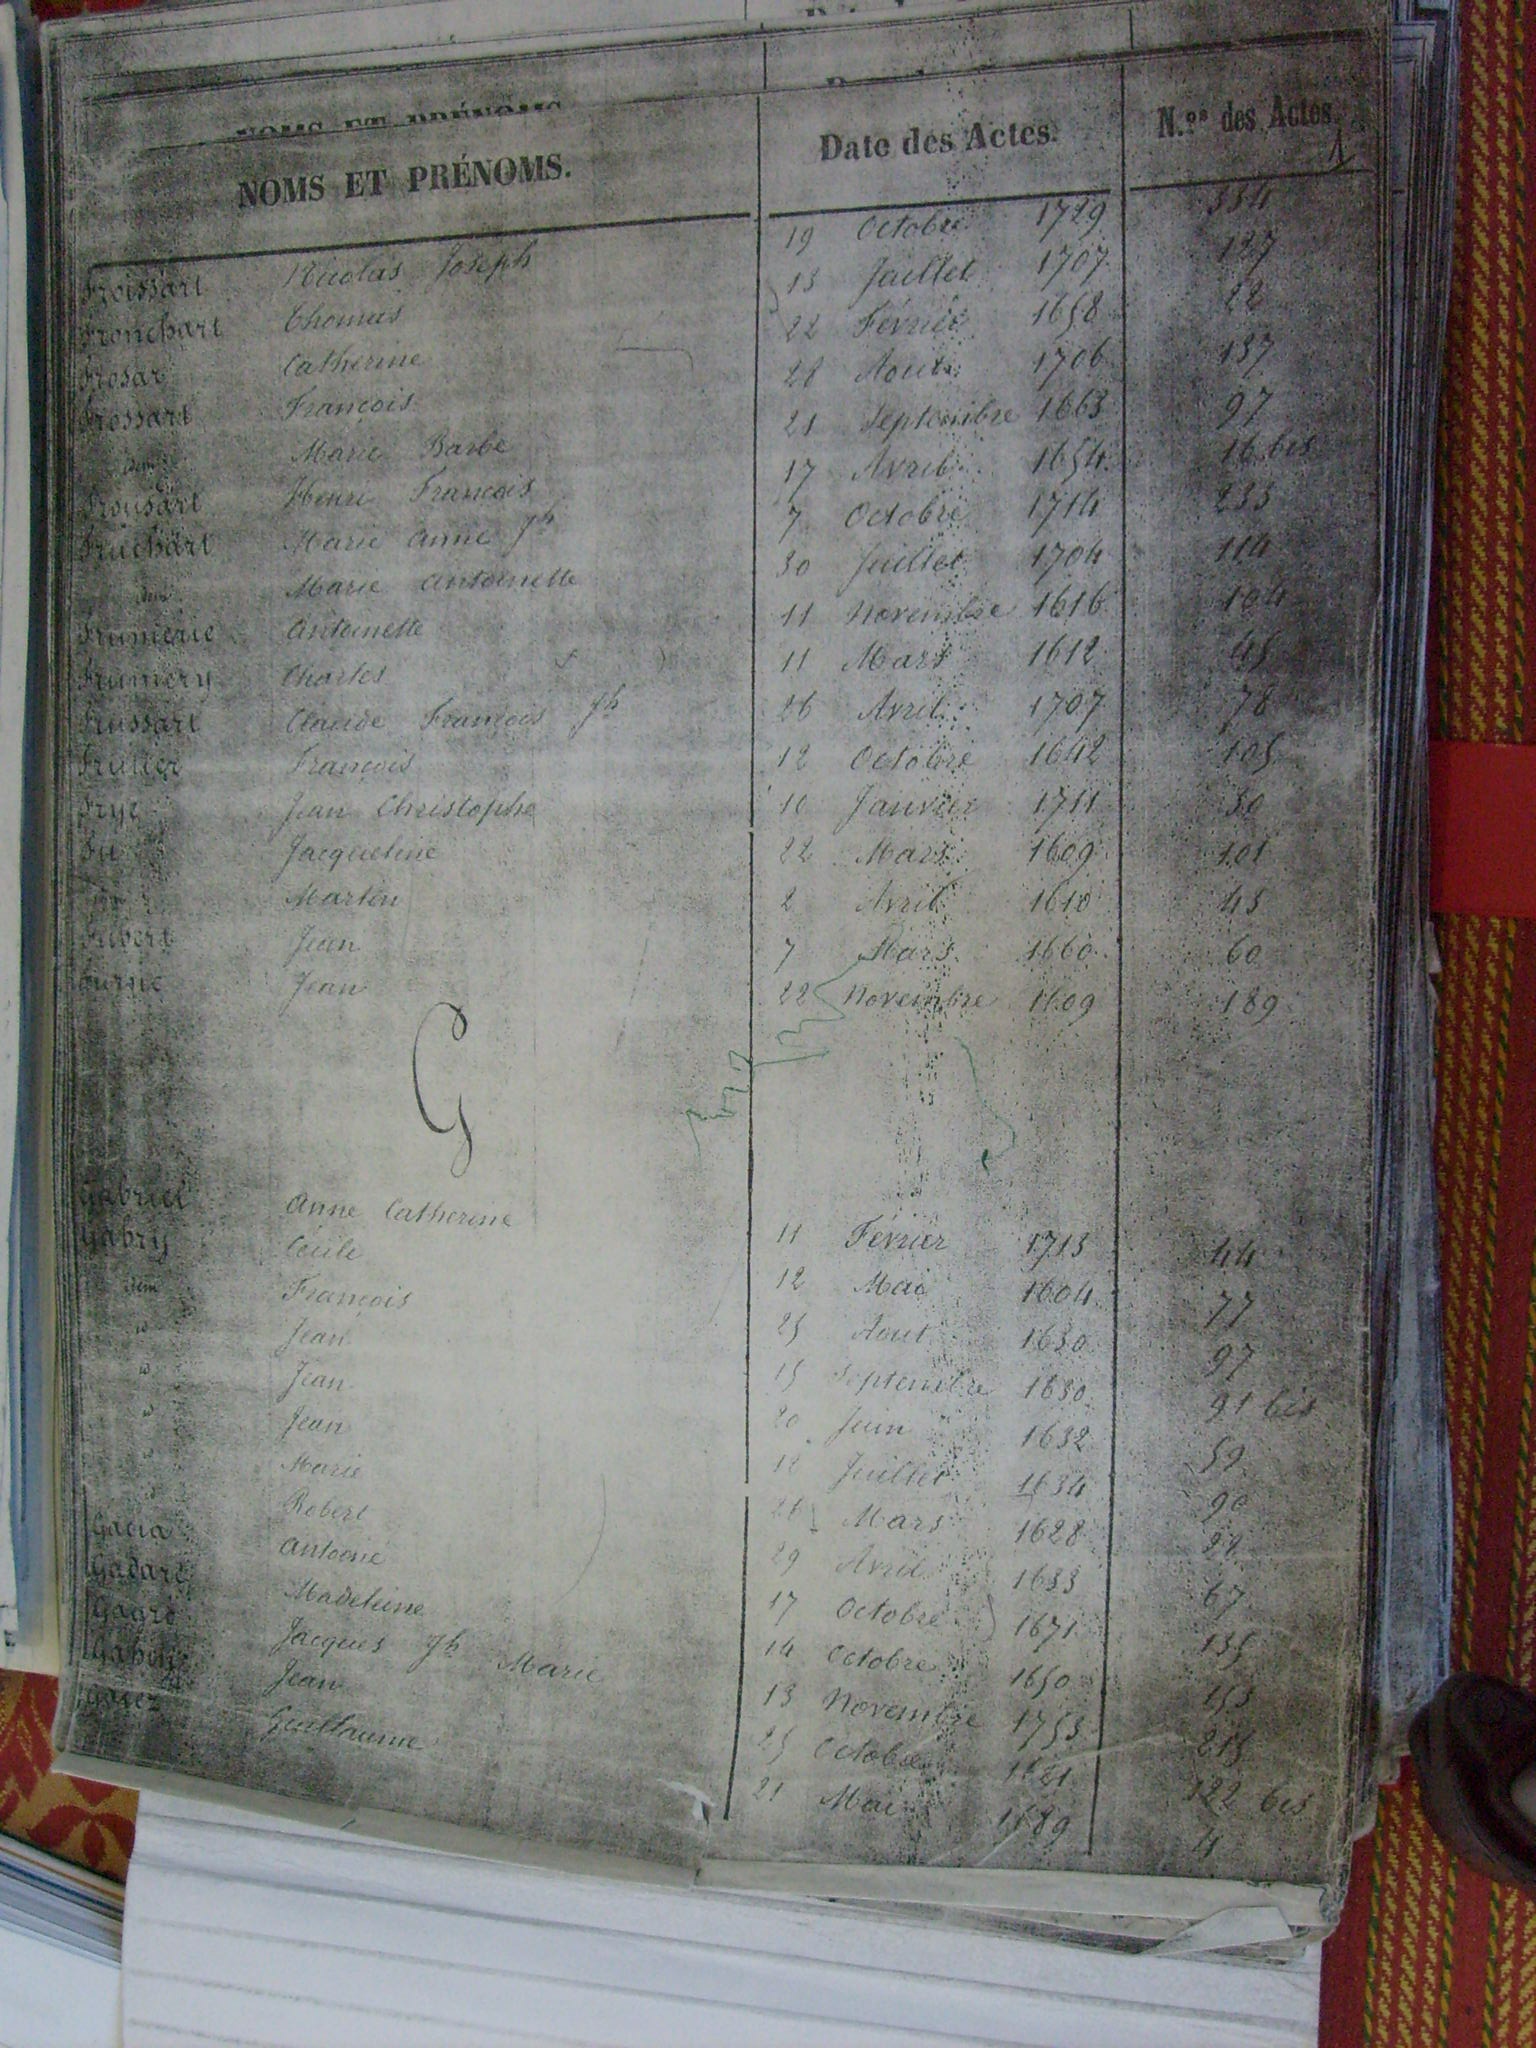 NOMS ET PRÉNOMS
NOMS ET PRÉNOMS. Date des Actes. N.os des Actes.
Froissart Nicolas Joseph 19 Octobre 1729 334
Fronchart Thomas 13 Juillet 1707 127
Frosar Catherine 22 Février 1658 22
Frossart François 28 Aout 1706 137
idem Marie Barbe 21 Septembre 1663 97
Frousart Henri François 17 Avril 1654 16 bis
Fruchart Marie Anne Jh 7 Octobre 1714 233
idem Marie Antoinette 30 Juillet 1704 114
Frumerie Antoinette 11 Novembre 1616 104
Frumery Charles 11 Mars 1612 45
Frussart Claude François Jh 26 Avril 1707 78
François 12 Octobre 1642 105
Frye Jean Christophe 10 Janvier 1711 30
Fu Jacqueline 22 Mars 1609 101
Martin 2 Avril 1610 43
Fubert Jean 7 Mars 1660 60
Furne Jean 22 Novembre 1609 189
G
Gabriel Anne Catherine 11 Février 1713 44
Gabry Cécile 12 Mai 1604 77
idem François 25 Aout 1630 97
id Jean 15 Septembre 1630 91 bis
id Jean 20 Juin 1632 59
id Jean 12 Juillet 1634 90
Marie 26 Mars 1628
Robert 29 Avril 1633 67
Gacia Antoine 17 Octobre 1671 135
Madeleine 14 Octobre 1650 153
Jacques Jh Marie 13 Novembre 1753 215
Jean 25 Octobre 1621 122 bis
Guillaume 21 Mai 1689 4